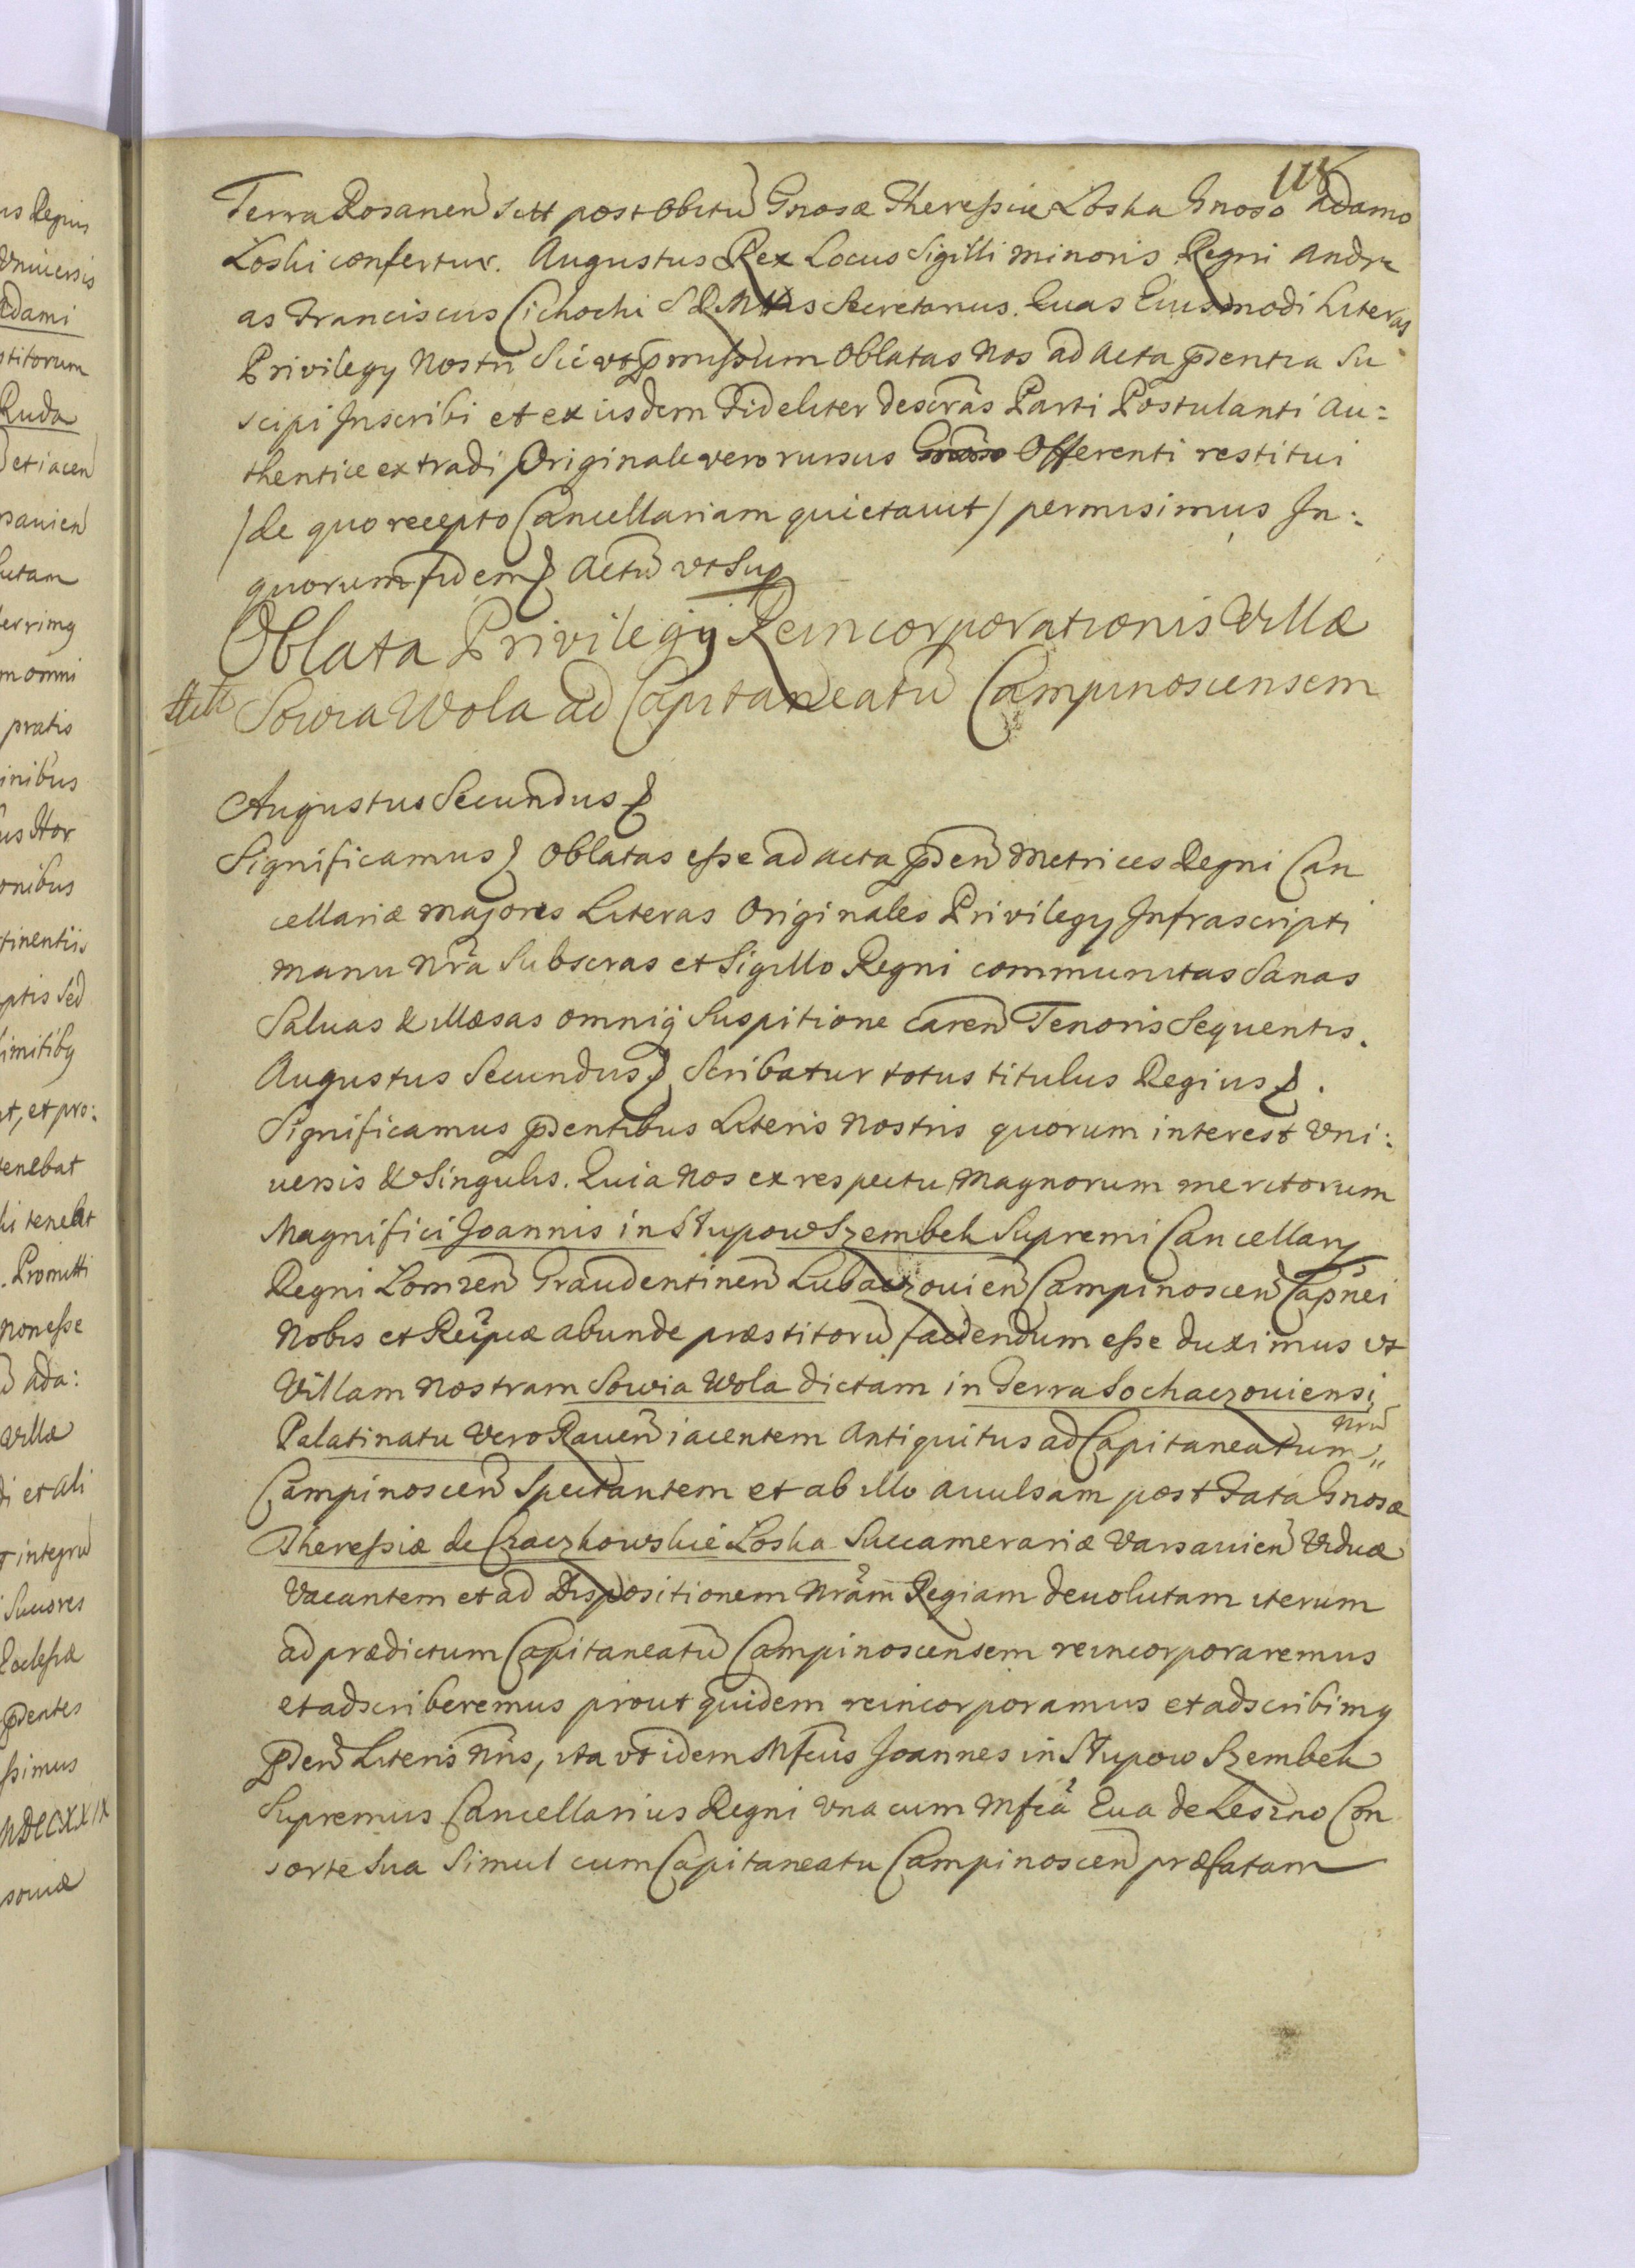 118
Terra Rosanen sitt post obitũ Gnosæ Theressiæ Łoska Gnoso Adamo
Łoski confertur. Augustus Rex Locus Sigilli minoris Regni Andre
as Franciscus Cichocki S R Mttis Secretarius. Quas Eiusmodi Literas
Privilegy Nostri Sic vt pmissum Oblatas Nos ad Acta pdentia Su
scipi Inscribi et ex iisdem Fideliter descrãs Parti Postulanti Au:
thentice extradi Originale vero rursus Offerenti restitui
/de quo recepto Cancellariam quietauit/ permisimus In:
quorum fidem Actũ vt Sup
Oblata Privilegij Reincorporationis Villæ
Sowia Wola ad Capitaneatũ Campinoscensem
Augustus Secundus
Significamus Oblatas esse ad acta pden Metrices Regni Can
cellariæ majoris Literas Originales Privilegy Infrascripti
manu nrã Subscras et Sigillo Regni communitas Sanas
Saluas & illæsas omniq Suspitione Caren Tenoris Sequentis.
Augustus Secundus Scribatur totus titulus Regius.
Significamus pdentibus Literis Nostris quorum interest Vni:
uersis & Singulis. Quia Nos ex respectu Magnorum meritorum
Magnifici Joannis in Słupow Szembek Supremi Cancellarij
Regni Lomzen Graudentinen Lubaczouien Campinoscen Capnei
Nobis et Reipcæ abunde præstitorũ faciendum esse duximus vt
Villam Nostram Sowia Wola dictam in Terra Sochaczouiensi
Palatinatu Vero Rauen iacentem Antiquitus ad Capitaneatum nrũ
Campinoscen Spectantem et ab illo auulsam post Fata Gnosæ
Theressiæ de Czaczkowskie Łoska Succamerariæ Varsauien Viduæ
Vacantem et ad Dispositionem Nrãm Regiam deuolutam iterum
ad prædictum Capitaneatũ Campinoscensem reincorporaremus
et adscriberemus prout quidem reincorporamus et adscribimq
Pden Literis Nris, ita vt idem Mfcus Joannes in Słupow Szembek
Supremus Cancellarius Regni Vna cum Mfcã Eua de Leszno Con
sorte Sua Simul cum Capitaneatu Campinoscen præfatam